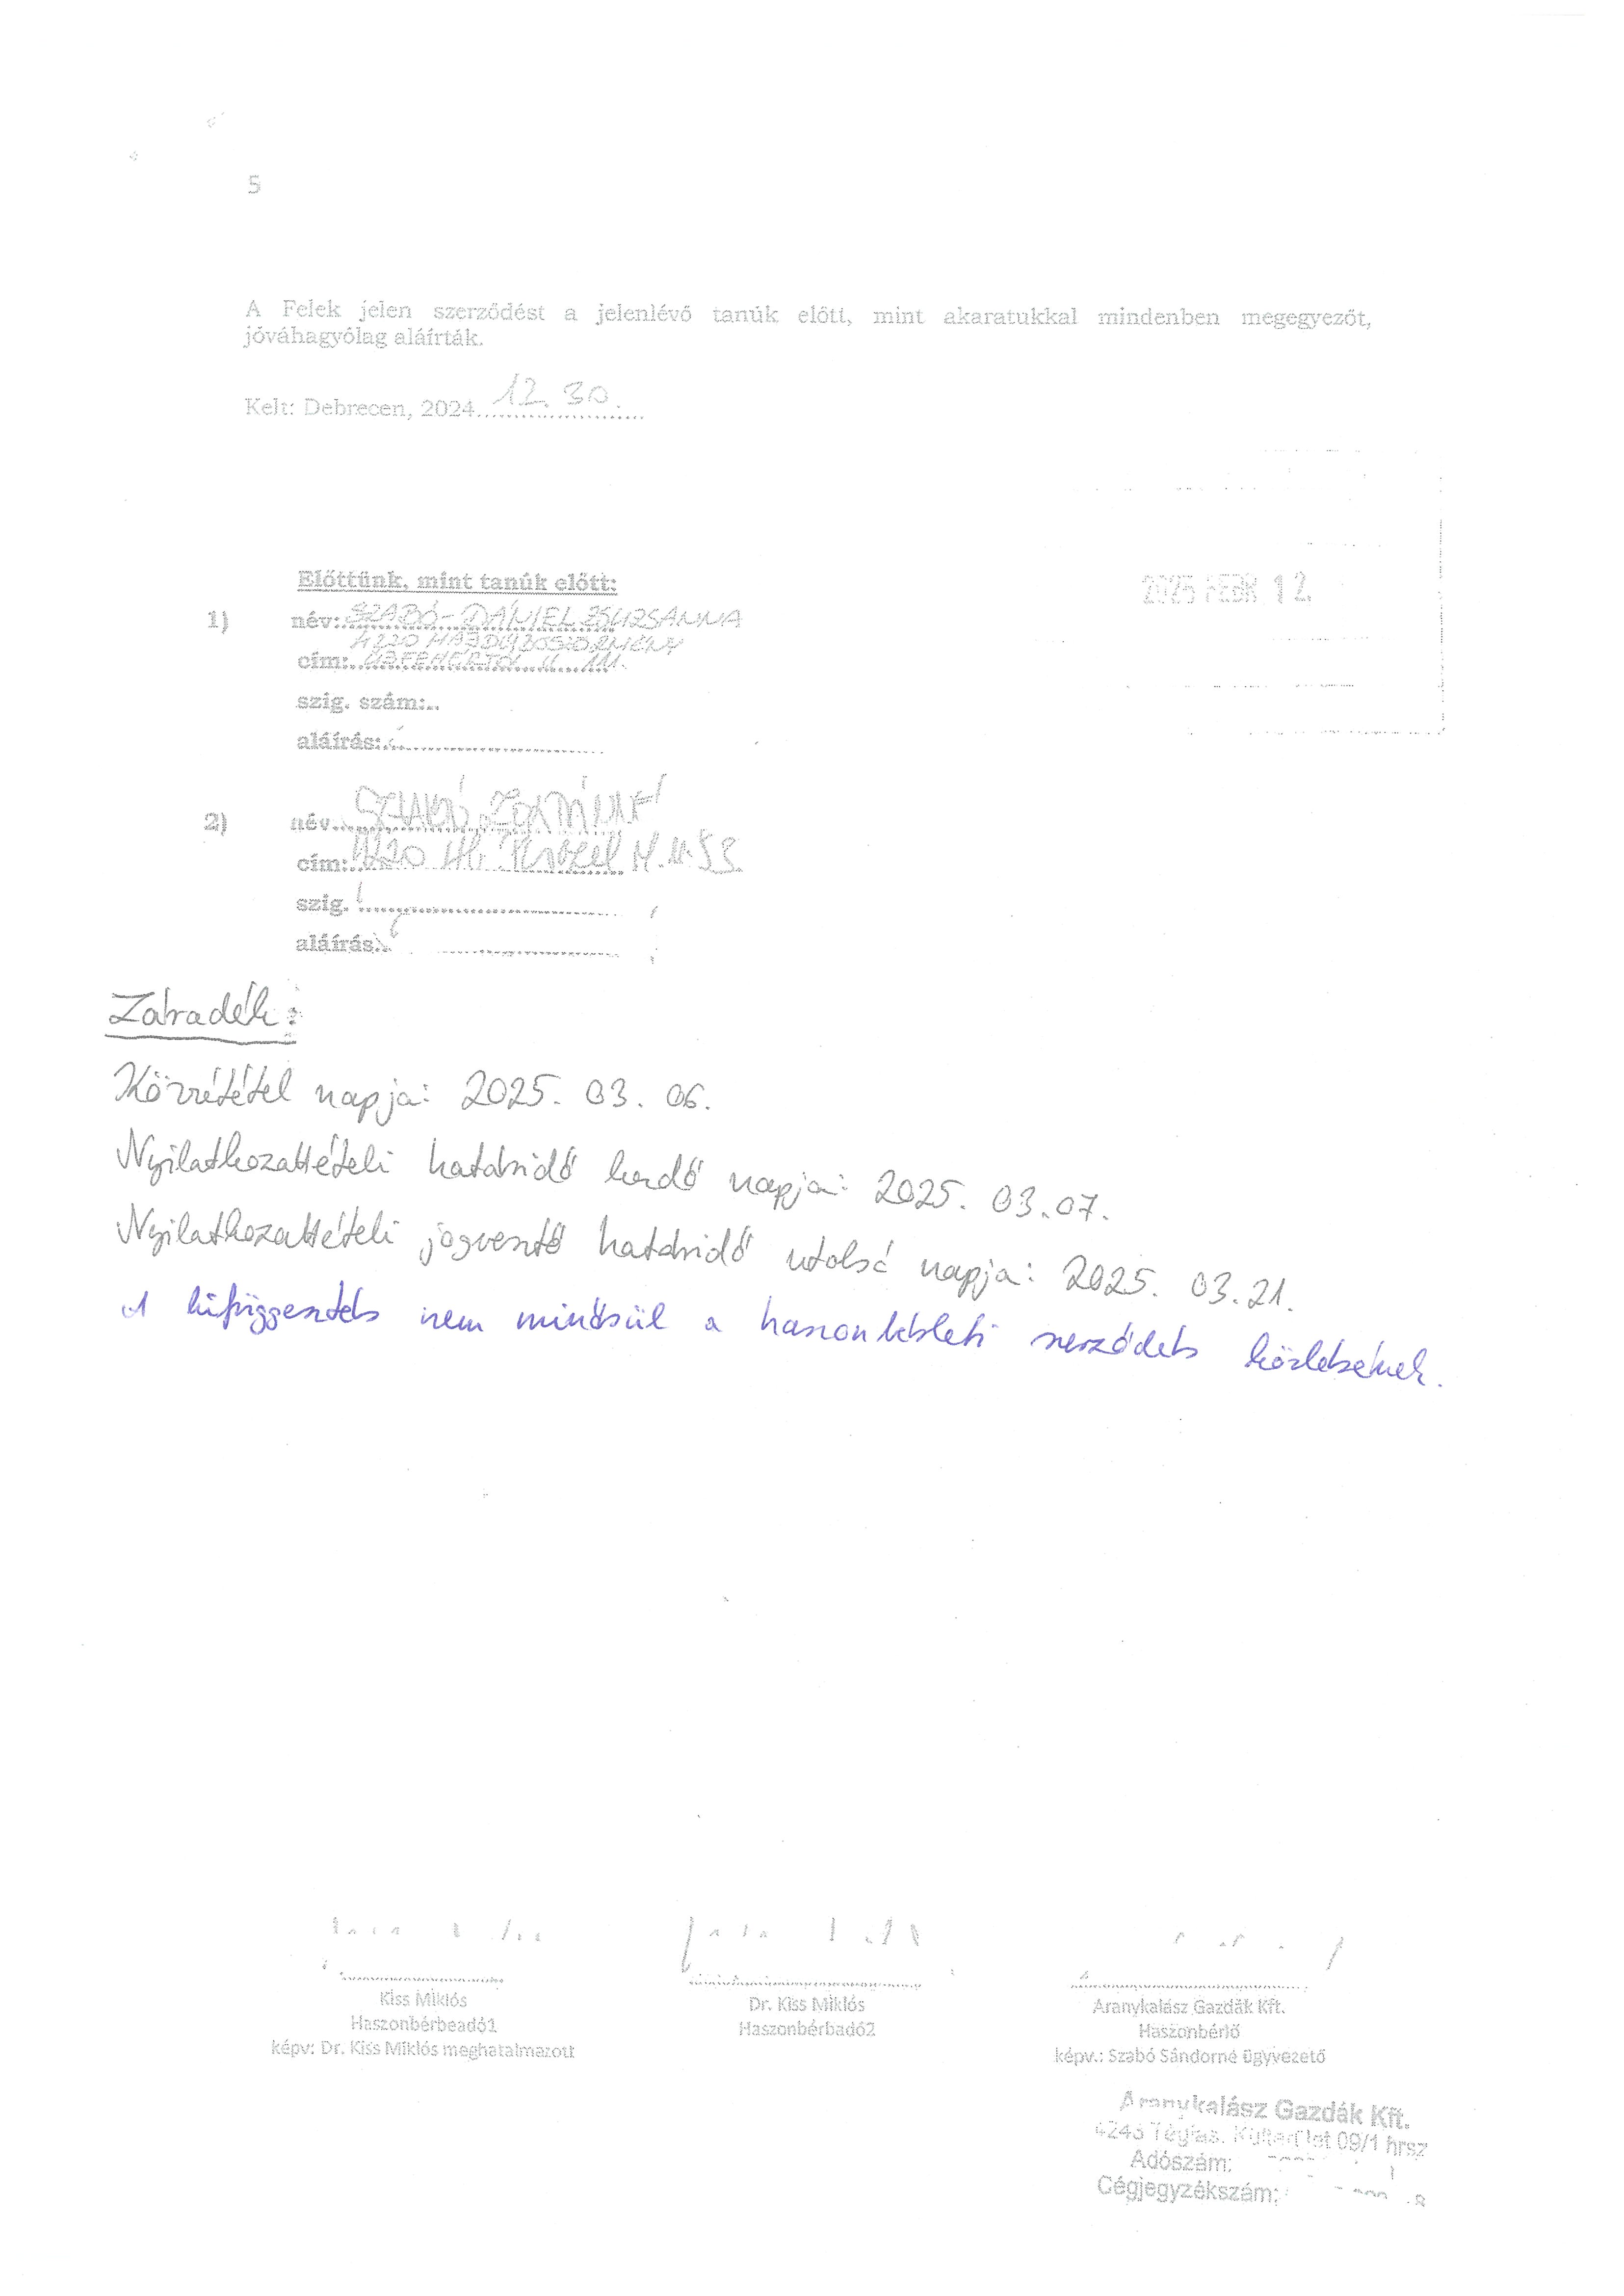 5
A Felek jelen szerződést a jelenlévő tanúk előtt, mint akaratukkal mindenben megegyezőt,
jóváhagyólag aláírták.
Kelt: Debrecen, 2024. 12. 30.
2025 FEBR 12.
Előttünk, mint tanúk előtt:
1) név: SZABÓ-DÁNIEL ZSUZSANNA
4220 HAJDÚBÖSZÖRMÉNY
cím: ÚJFEHÉRTÓI U. 111.
szig. szám:
aláírás:
2) név
cím: 4220
szig.
aláírás:
Záradék:
Közzététel napja: 2025. 03. 06.
Nyilatkozattételi határidő kezdő napja: 2025. 03.07.
Nyilatkozattételi jogvesztő határidő utolsó napja: 2025. 03.21.
A kifüggesztés nem minősül a haszonbérleti szerződés közlésének.
Kiss Miklós
Haszonbérbeadó1
képv: Dr. Kiss Miklós meghatalmazott
Dr. Kiss Miklós
Haszonbérbadó2
Aranykalász Gazdák Kft.
Haszonbérlő
képv.: Szabó Sándorné ügyvezető
Aranykalász Gazdák Kft.
4243 Téglás, Külterület 09/1 hrsz
Adószám:
Cégjegyzékszám: